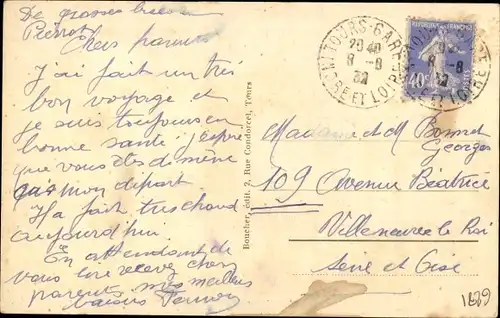 De grosses
Pierrot
Chers parents
J'ai fait un très
bon voyage et
je suis toujours en
bonne santé j'espère
que vous êtes de même
que mon départ
Il a fait très chaud
aujourd'hui
En attendant de
vous lire recevez chers
parents mes meilleurs
baisers
Boucher, édit. 2, Rue Condorcet, Tours
TOURS-GARE
20 40
8 -8
32
INDRE ET LOIRE
REPUBLIQUE FRANÇAISE
40c
8 -8
32
Madame et M Bonnet
Georges
109 Avenue Béatrice
Villeneuve le Roi
Seine et Oise
1689